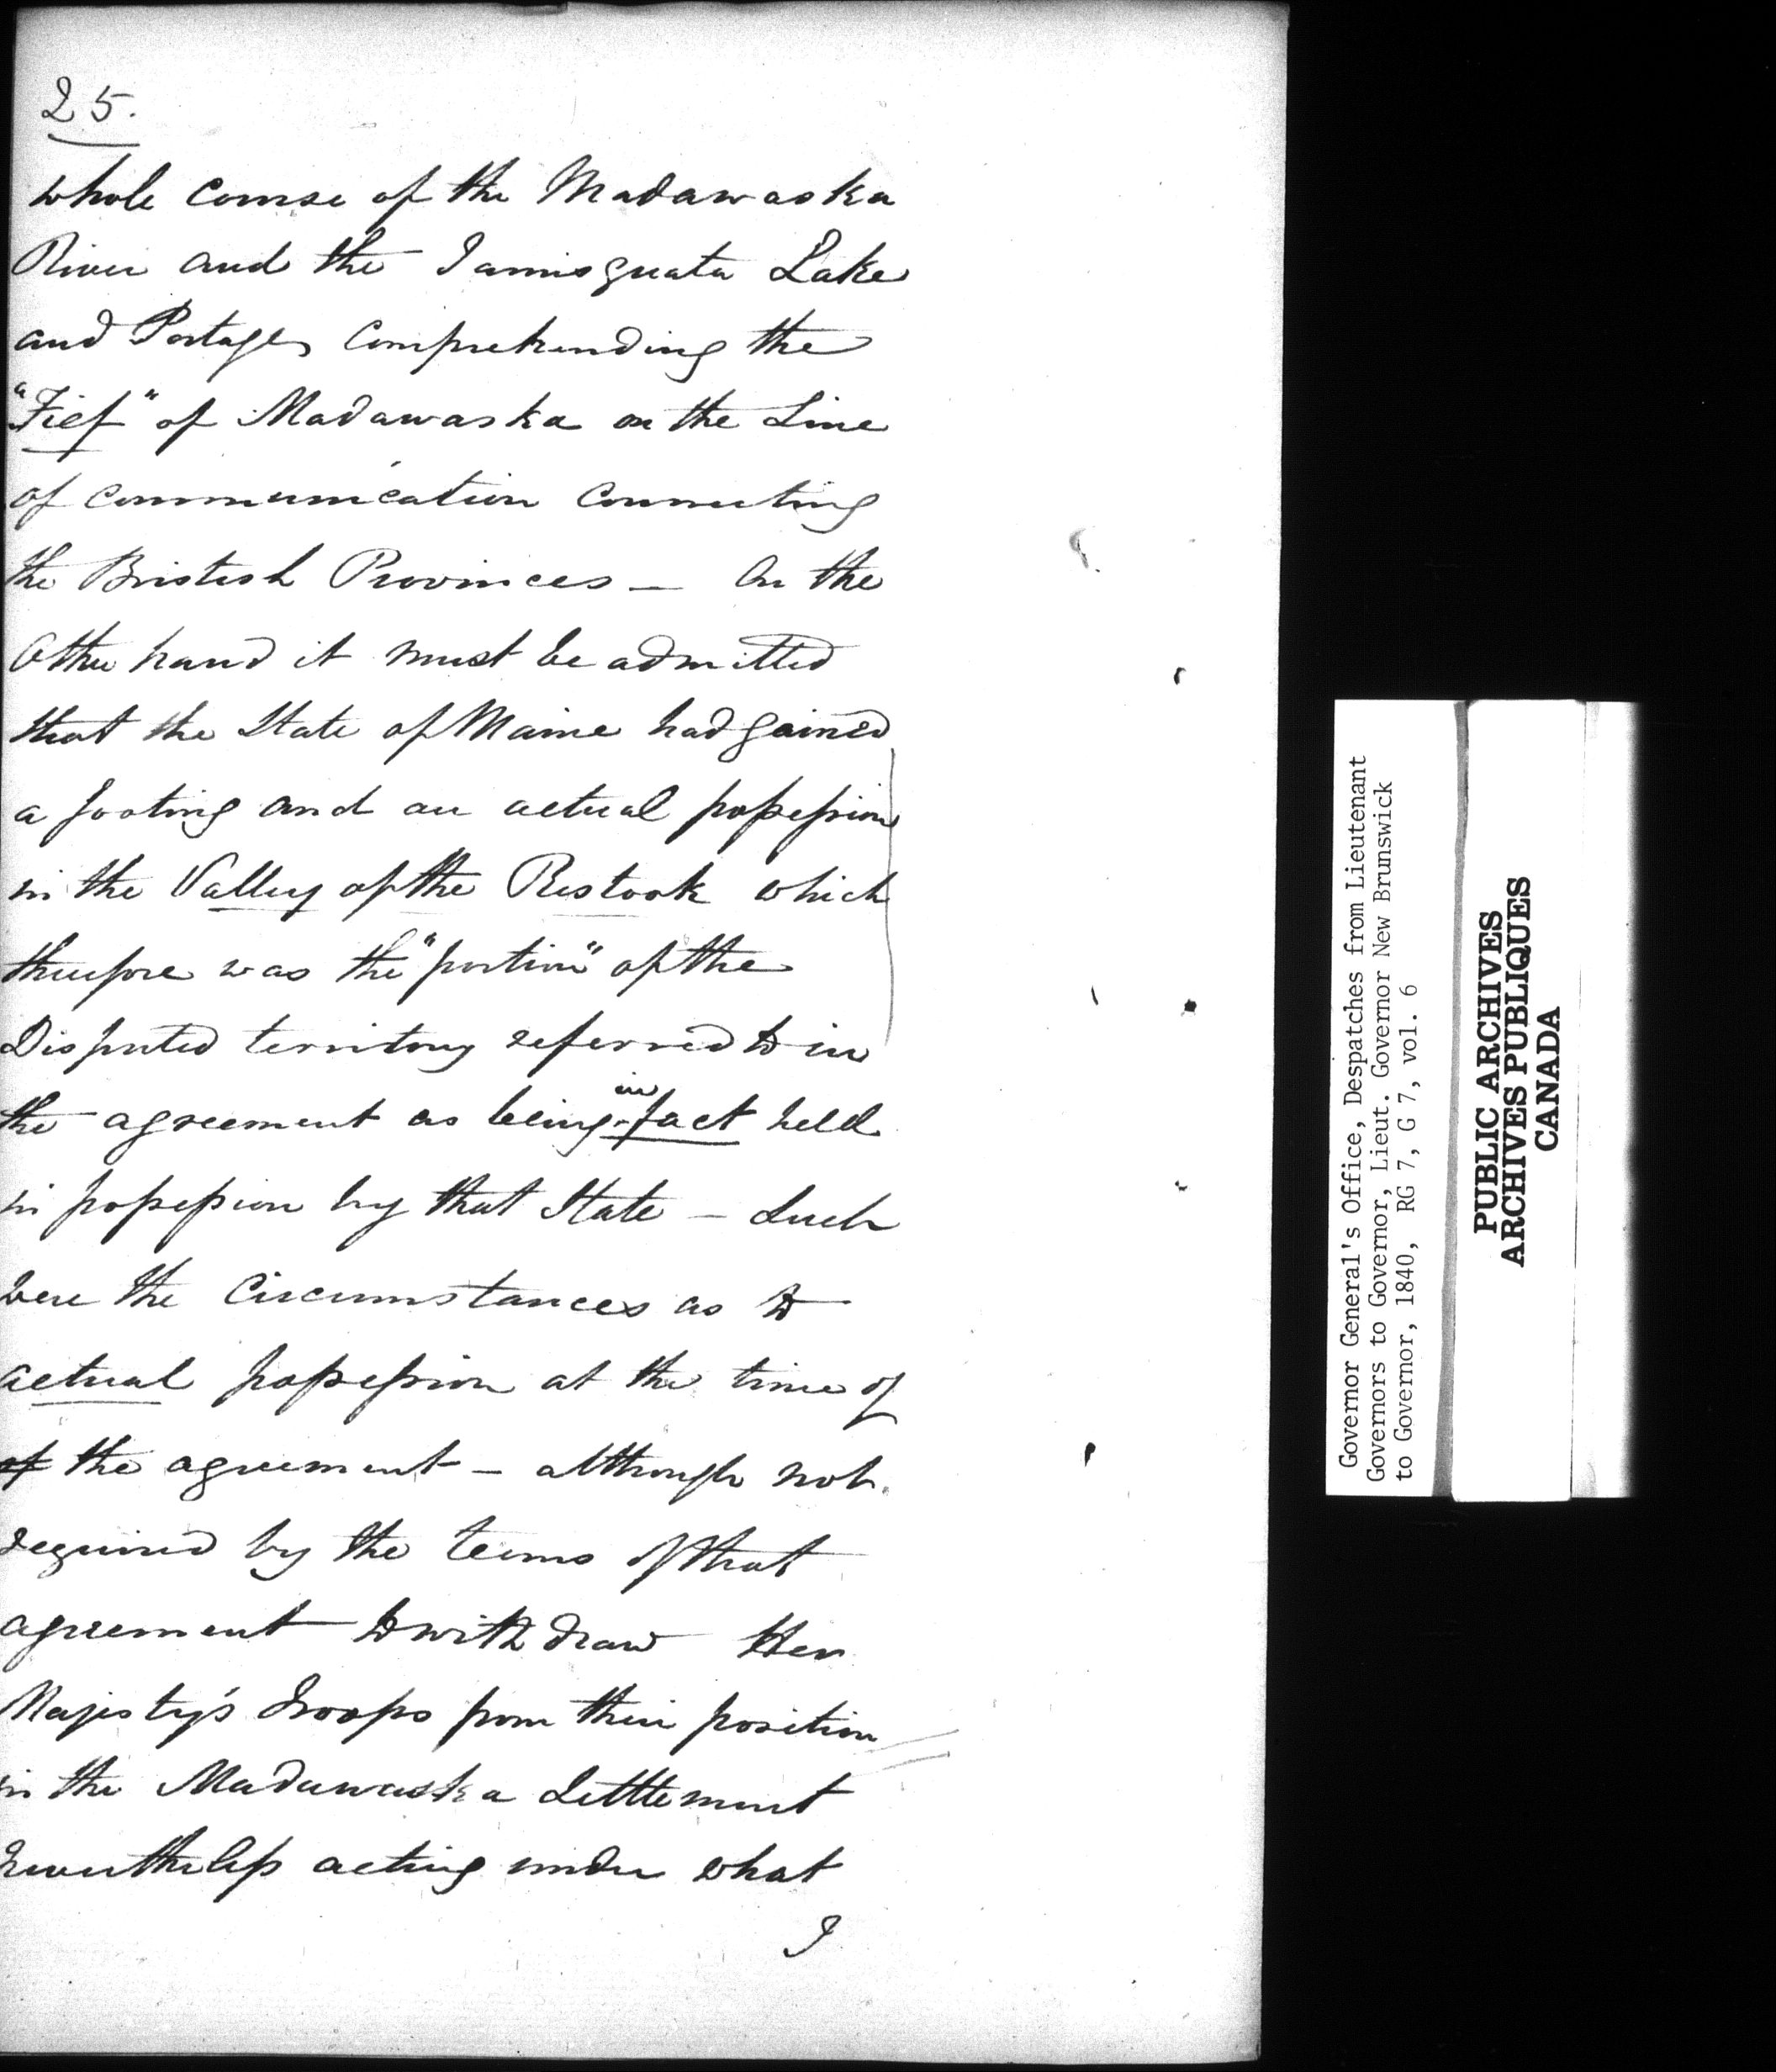 25.
whole course of the Madawaska
River and the Tamisquata Lake
and Portage, Comprehending the
"Fief" of Madawaska on the Line
of communication Connecting
the British Provinces — On the
Other hand it must be admitted
that the State of Maine had gained
a footing and an actual possession
in the Valley of the Restook which
therefore was the "portion" of the
Disputed territory referred to in
the agreement as being in fact held
in possession by that State — Such
were the Circumstances as to
actual possession at the time of
of the agreement — although not
required by the terms of that
agreement to withdraw Her
Majesty's Troops from their position
in the Madawaska Settlement
nevertheless acting under what
I
Governor General's Office, Despatches from Lieutenant
Governors to Governor, Lieut. Governor New Brunswick
to Governor, 1840, RG 7, G 7, vol. 6
PUBLIC ARCHIVES
ARCHIVES PUBLIQUES
CANADA